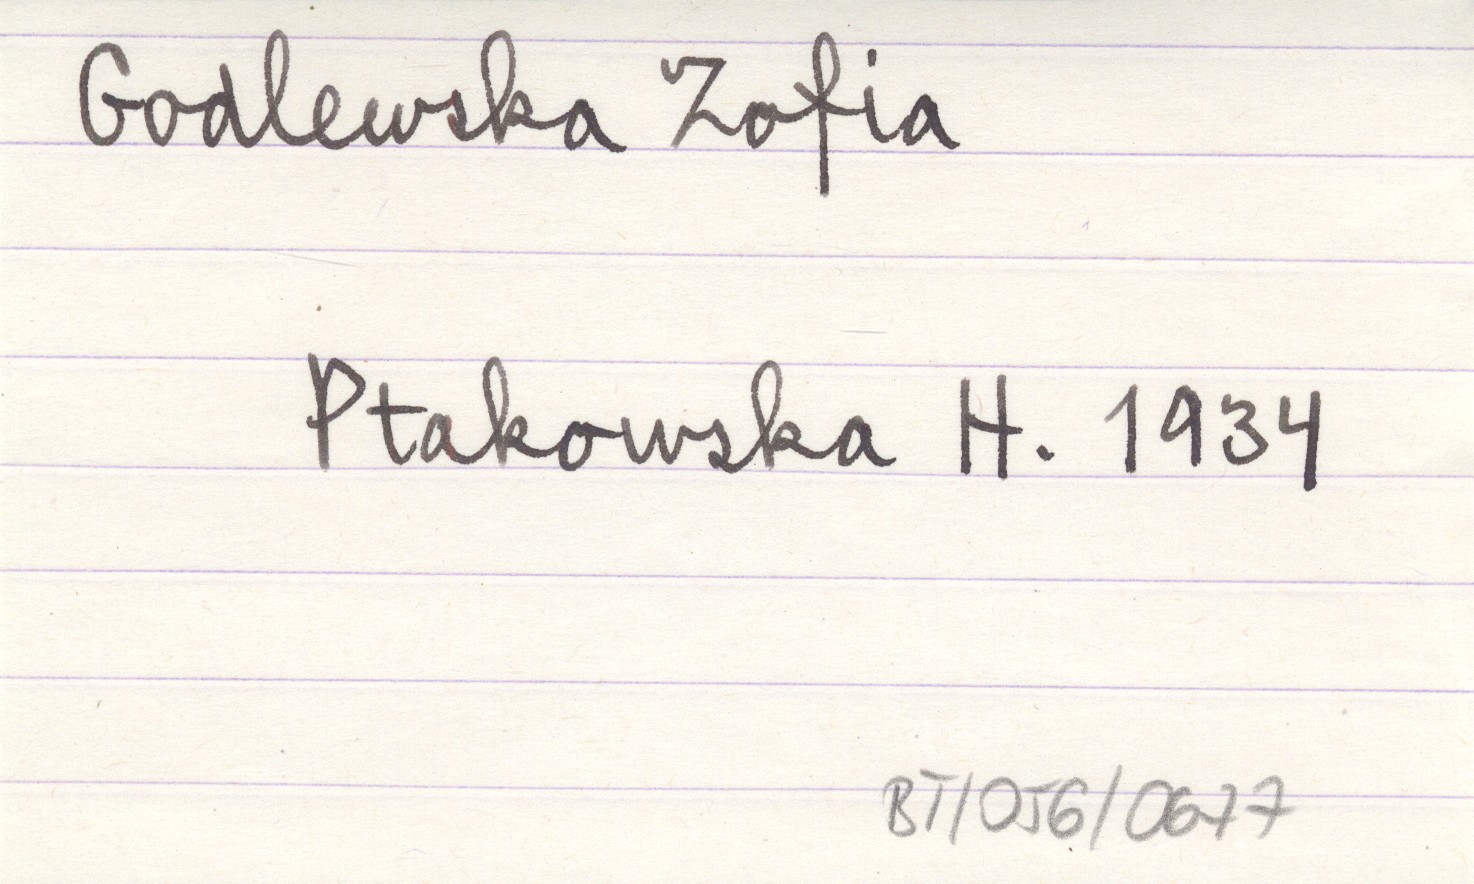 Godlewska Zofia
Ptakowska H. 1934
BT/056/0677